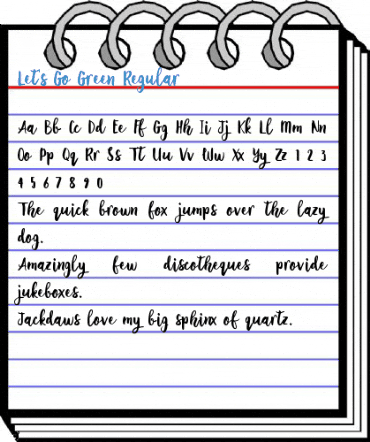 Let's Go Green Regular
Aa Bb Cc Dd Ee Ff Gg Hh Ii Jj Kk Ll Mm Nn
Oo Pp Qq Rr Ss Tt Uu Vv Ww Xx Yy Zz 1 2 3
4 5 6 7 8 9 0
The quick brown fox jumps over the lazy
dog.
Amazingly few discotheques provide
jukeboxes.
Jackdaws love my big sphinx of quartz.